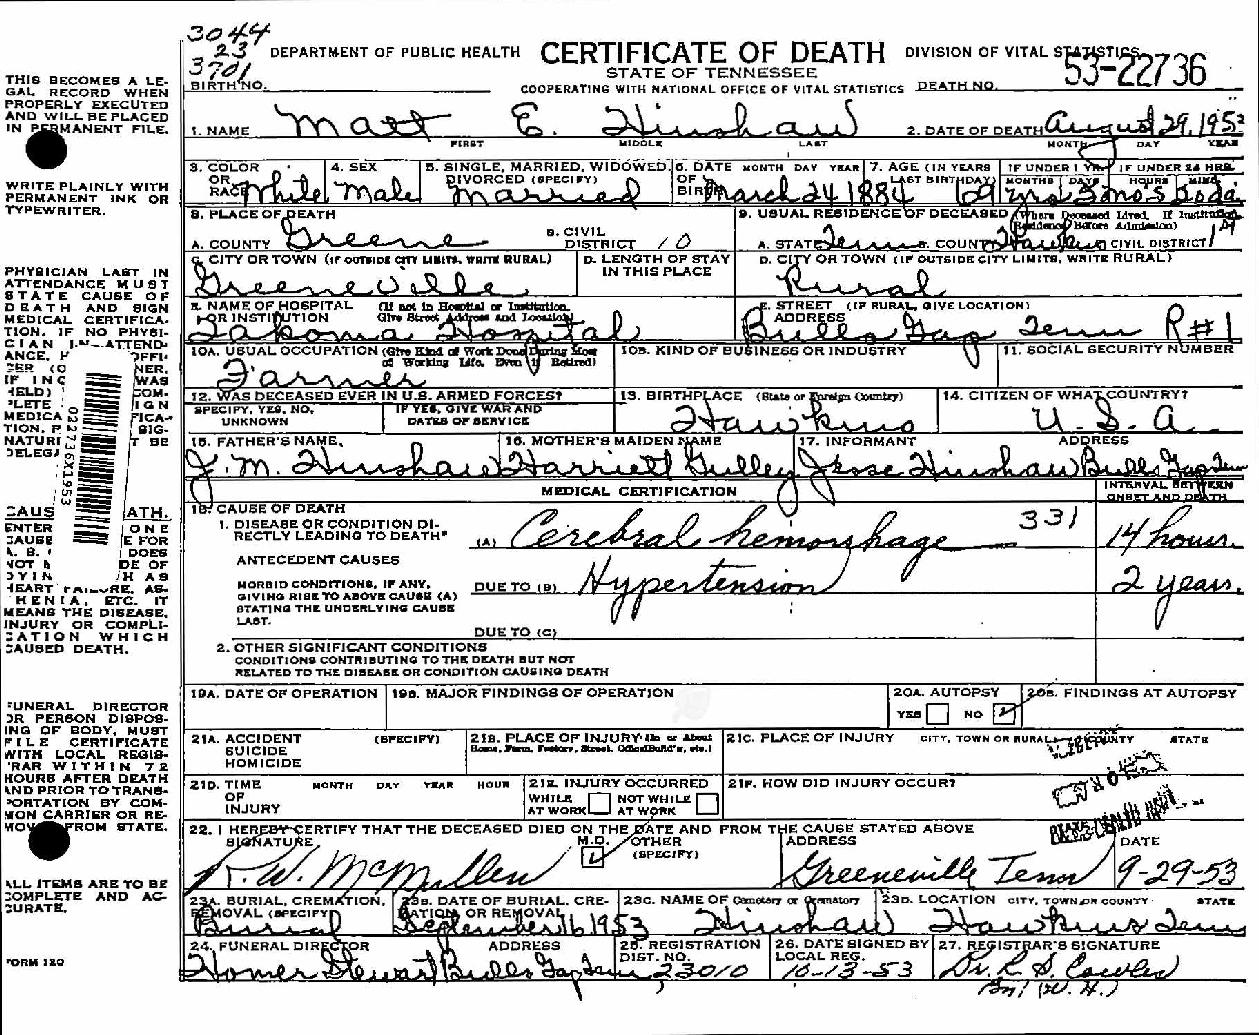 3044
23
3701
DEPARTMENT OF PUBLIC HEALTH CERTIFICATE OF DEATH DIVISION OF VITAL STATISTICS
STATE OF TENNESSEE 53-22736
BIRTH NO. COOPERATING WITH NATIONAL OFFICE OF VITAL STATISTICS DEATH NO.
1. NAME Matt E. Hinshaw 2. DATE OF DEATH August 29, 1953
FIRST MIDDLE LAST MONTH DAY YEAR
3. COLOR OR RACE White 4. SEX Male 5. SINGLE, MARRIED, WIDOWED, DIVORCED (SPECIFY) Married 6. DATE OF BIRTH MONTH DAY YEAR March 24 1884 7. AGE (IN YEARS LAST BIRTHDAY) 69 yrs 5 mos 5 da IF UNDER 1 YR. MONTHS DAYS IF UNDER 24 HRS. HOURS MINS
8. PLACE OF DEATH 9. USUAL RESIDENCE OF DECEASED (Where Deceased Lived. If Institution, Residence Before Admission)
A. COUNTY Greene B. CIVIL DISTRICT 10 A. STATE Tenn B. COUNTY Hawkins C. CIVIL DISTRICT
C. CITY OR TOWN (IF OUTSIDE CITY LIMITS, WRITE RURAL) Greeneville D. LENGTH OF STAY IN THIS PLACE D. CITY OR TOWN (IF OUTSIDE CITY LIMITS, WRITE RURAL) Rural
E. NAME OF HOSPITAL OR INSTITUTION (If not in Hospital or Institution, Give Street Address and Location) Takoma Hospital E. STREET ADDRESS (IF RURAL, GIVE LOCATION) Bulls Gap Tenn R#1
10A. USUAL OCCUPATION (Give Kind of Work Done During Most of Working Life, Even if Retired) Farmer 10B. KIND OF BUSINESS OR INDUSTRY 11. SOCIAL SECURITY NUMBER
12. WAS DECEASED EVER IN U.S. ARMED FORCES? 13. BIRTHPLACE (State or Foreign Country) Hawkins 14. CITIZEN OF WHAT COUNTRY? U.S.A.
SPECIFY, YES, NO, UNKNOWN IF YES, GIVE WAR AND DATES OF SERVICE
15. FATHER'S NAME J. M. Hinshaw 16. MOTHER'S MAIDEN NAME Harriett Gulley 17. INFORMANT Jesse Hinshaw ADDRESS Bulls Gap Tenn
MEDICAL CERTIFICATION INTERVAL BETWEEN ONSET AND DEATH
18. CAUSE OF DEATH
1. DISEASE OR CONDITION DIRECTLY LEADING TO DEATH* (A) Cerebral hemorrhage 331 14 hours.
ANTECEDENT CAUSES
MORBID CONDITIONS, IF ANY, GIVING RISE TO ABOVE CAUSE (A) STATING THE UNDERLYING CAUSE LAST. DUE TO (B) Hypertension 2 years.
DUE TO (C)
2. OTHER SIGNIFICANT CONDITIONS
CONDITIONS CONTRIBUTING TO THE DEATH BUT NOT
RELATED TO THE DISEASE OR CONDITION CAUSING DEATH
19A. DATE OF OPERATION 19B. MAJOR FINDINGS OF OPERATION 20A. AUTOPSY YES NO 20B. FINDINGS AT AUTOPSY
21A. ACCIDENT SUICIDE HOMICIDE (SPECIFY) 21B. PLACE OF INJURY (In or About Home, Farm, Factory, Street, Office Build'g, etc.) 21C. PLACE OF INJURY CITY, TOWN OR RURAL COUNTY STATE
21D. TIME OF INJURY MONTH DAY YEAR HOUR 21E. INJURY OCCURRED WHILE AT WORK NOT WHILE AT WORK 21F. HOW DID INJURY OCCUR?
22. I HEREBY CERTIFY THAT THE DECEASED DIED ON THE DATE AND FROM THE CAUSE STATED ABOVE
SIGNATURE R. W. McMillen M.D. OTHER (SPECIFY) ADDRESS Greeneville Tenn DATE 9-29-53
23A. BURIAL, CREMATION, REMOVAL (SPECIFY) Burial 23B. DATE OF BURIAL, CREMATION OR REMOVAL September 1, 1953 23C. NAME OF Cemetery or Crematory Hinshaw 23D. LOCATION CITY, TOWN OR COUNTY STATE Hawkins Tenn
24. FUNERAL DIRECTOR ADDRESS Homer Stewart Bulls Gap Tenn 25. REGISTRATION DIST. NO. 23010 26. DATE SIGNED BY LOCAL REG. 10-13-53 27. REGISTRAR'S SIGNATURE Dr. R. S. Cowles
(W. H.)
THIS BECOMES A LE-
GAL RECORD WHEN
PROPERLY EXECUTED
AND WILL BE PLACED
IN PERMANENT FILE.
WRITE PLAINLY WITH
PERMANENT INK OR
TYPEWRITER.
PHYSICIAN LAST IN
ATTENDANCE MUST
STATE CAUSE OF
DEATH AND SIGN
MEDICAL CERTIFICA-
TION. IF NO PHYSI-
CIAN IN ATTEND-
ANCE,
022736X1953
ENTER ONE
CAUSE FOR
DOES
HEART FAILURE, AS-
THENIA, ETC. IT
MEANS THE DISEASE,
INJURY OR COMPLI-
CATION WHICH
CAUSED DEATH.
FUNERAL DIRECTOR
OR PERSON DISPOS-
ING OF BODY, MUST
FILE CERTIFICATE
WITH LOCAL REGIS-
TRAR WITHIN 72
HOURS AFTER DEATH
AND PRIOR TO TRANS-
PORTATION BY COM-
MON CARRIER OR RE-
MOVAL FROM STATE.
ALL ITEMS ARE TO BE
COMPLETE AND AC-
CURATE.
FORM 120